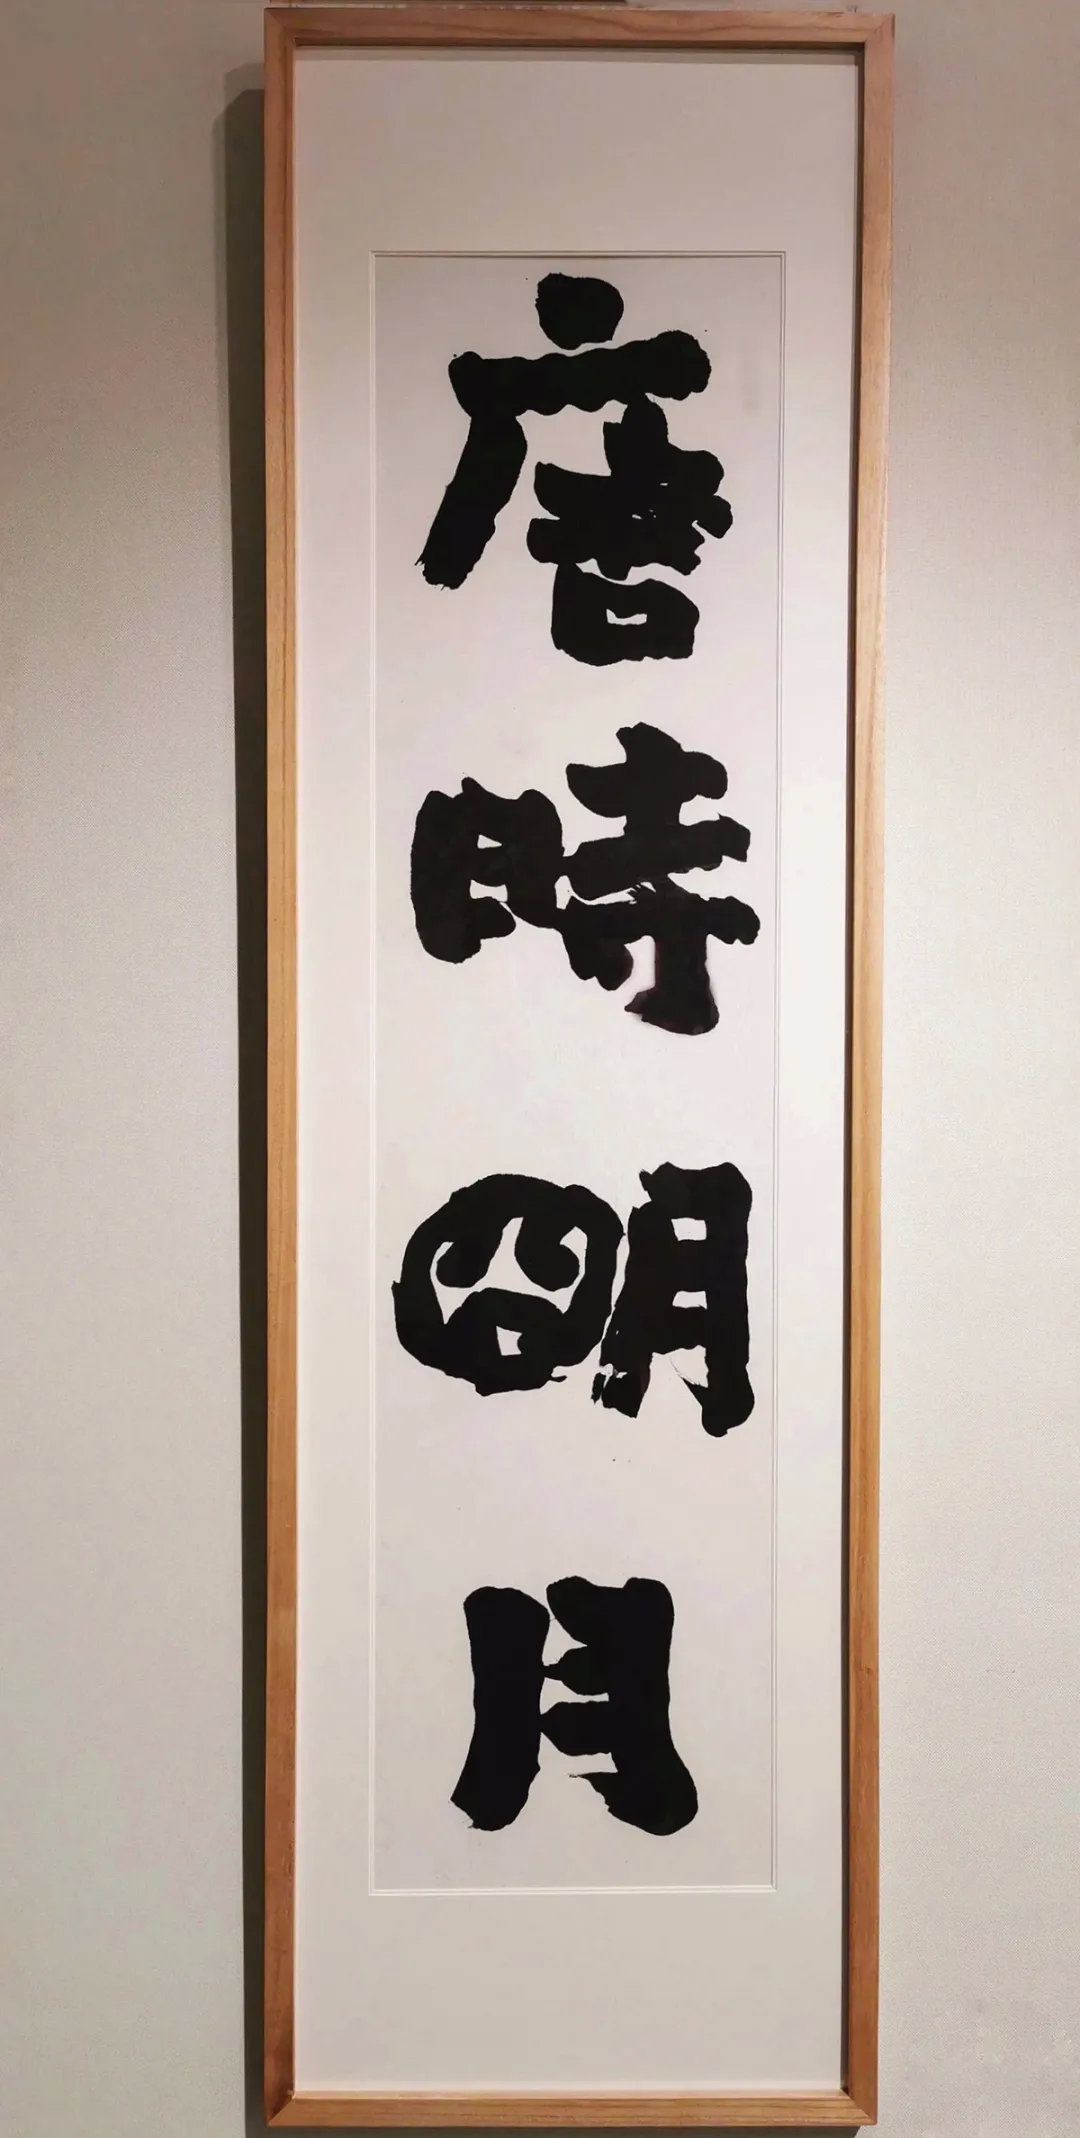 唐時明月